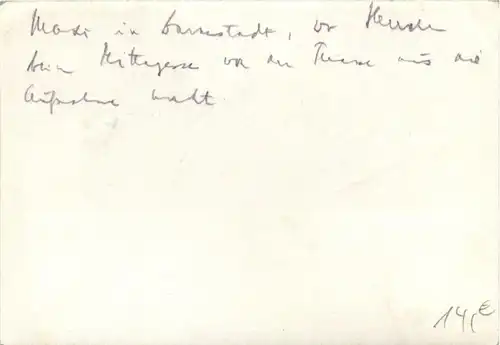 Mode in Darmstadt, vor
beim Mittagessen von der Terrasse aus die
Aufnahme macht.
14,€